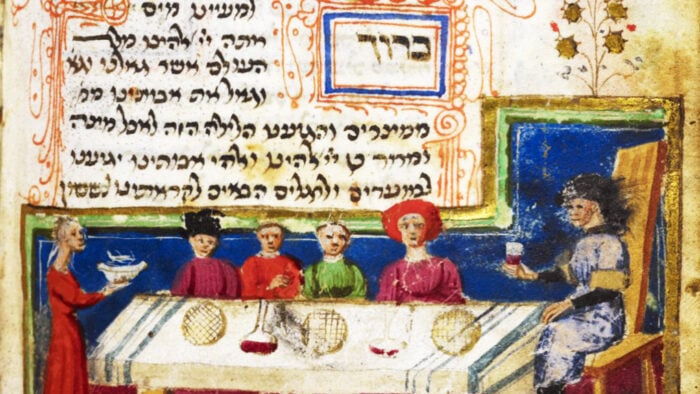 למעיינו מים
ברוך
אתה יי אלהינו מל
העולם אשר גאלנו וגא
וגאל את אבותינו ממ
ממצרים והגיענו הלילה הזה לאכל מצה
ומרור כן יי אלהינו ואלהי אבותינו יגיענו
למועדים ולרגלים הבאים לקראתינו לששון